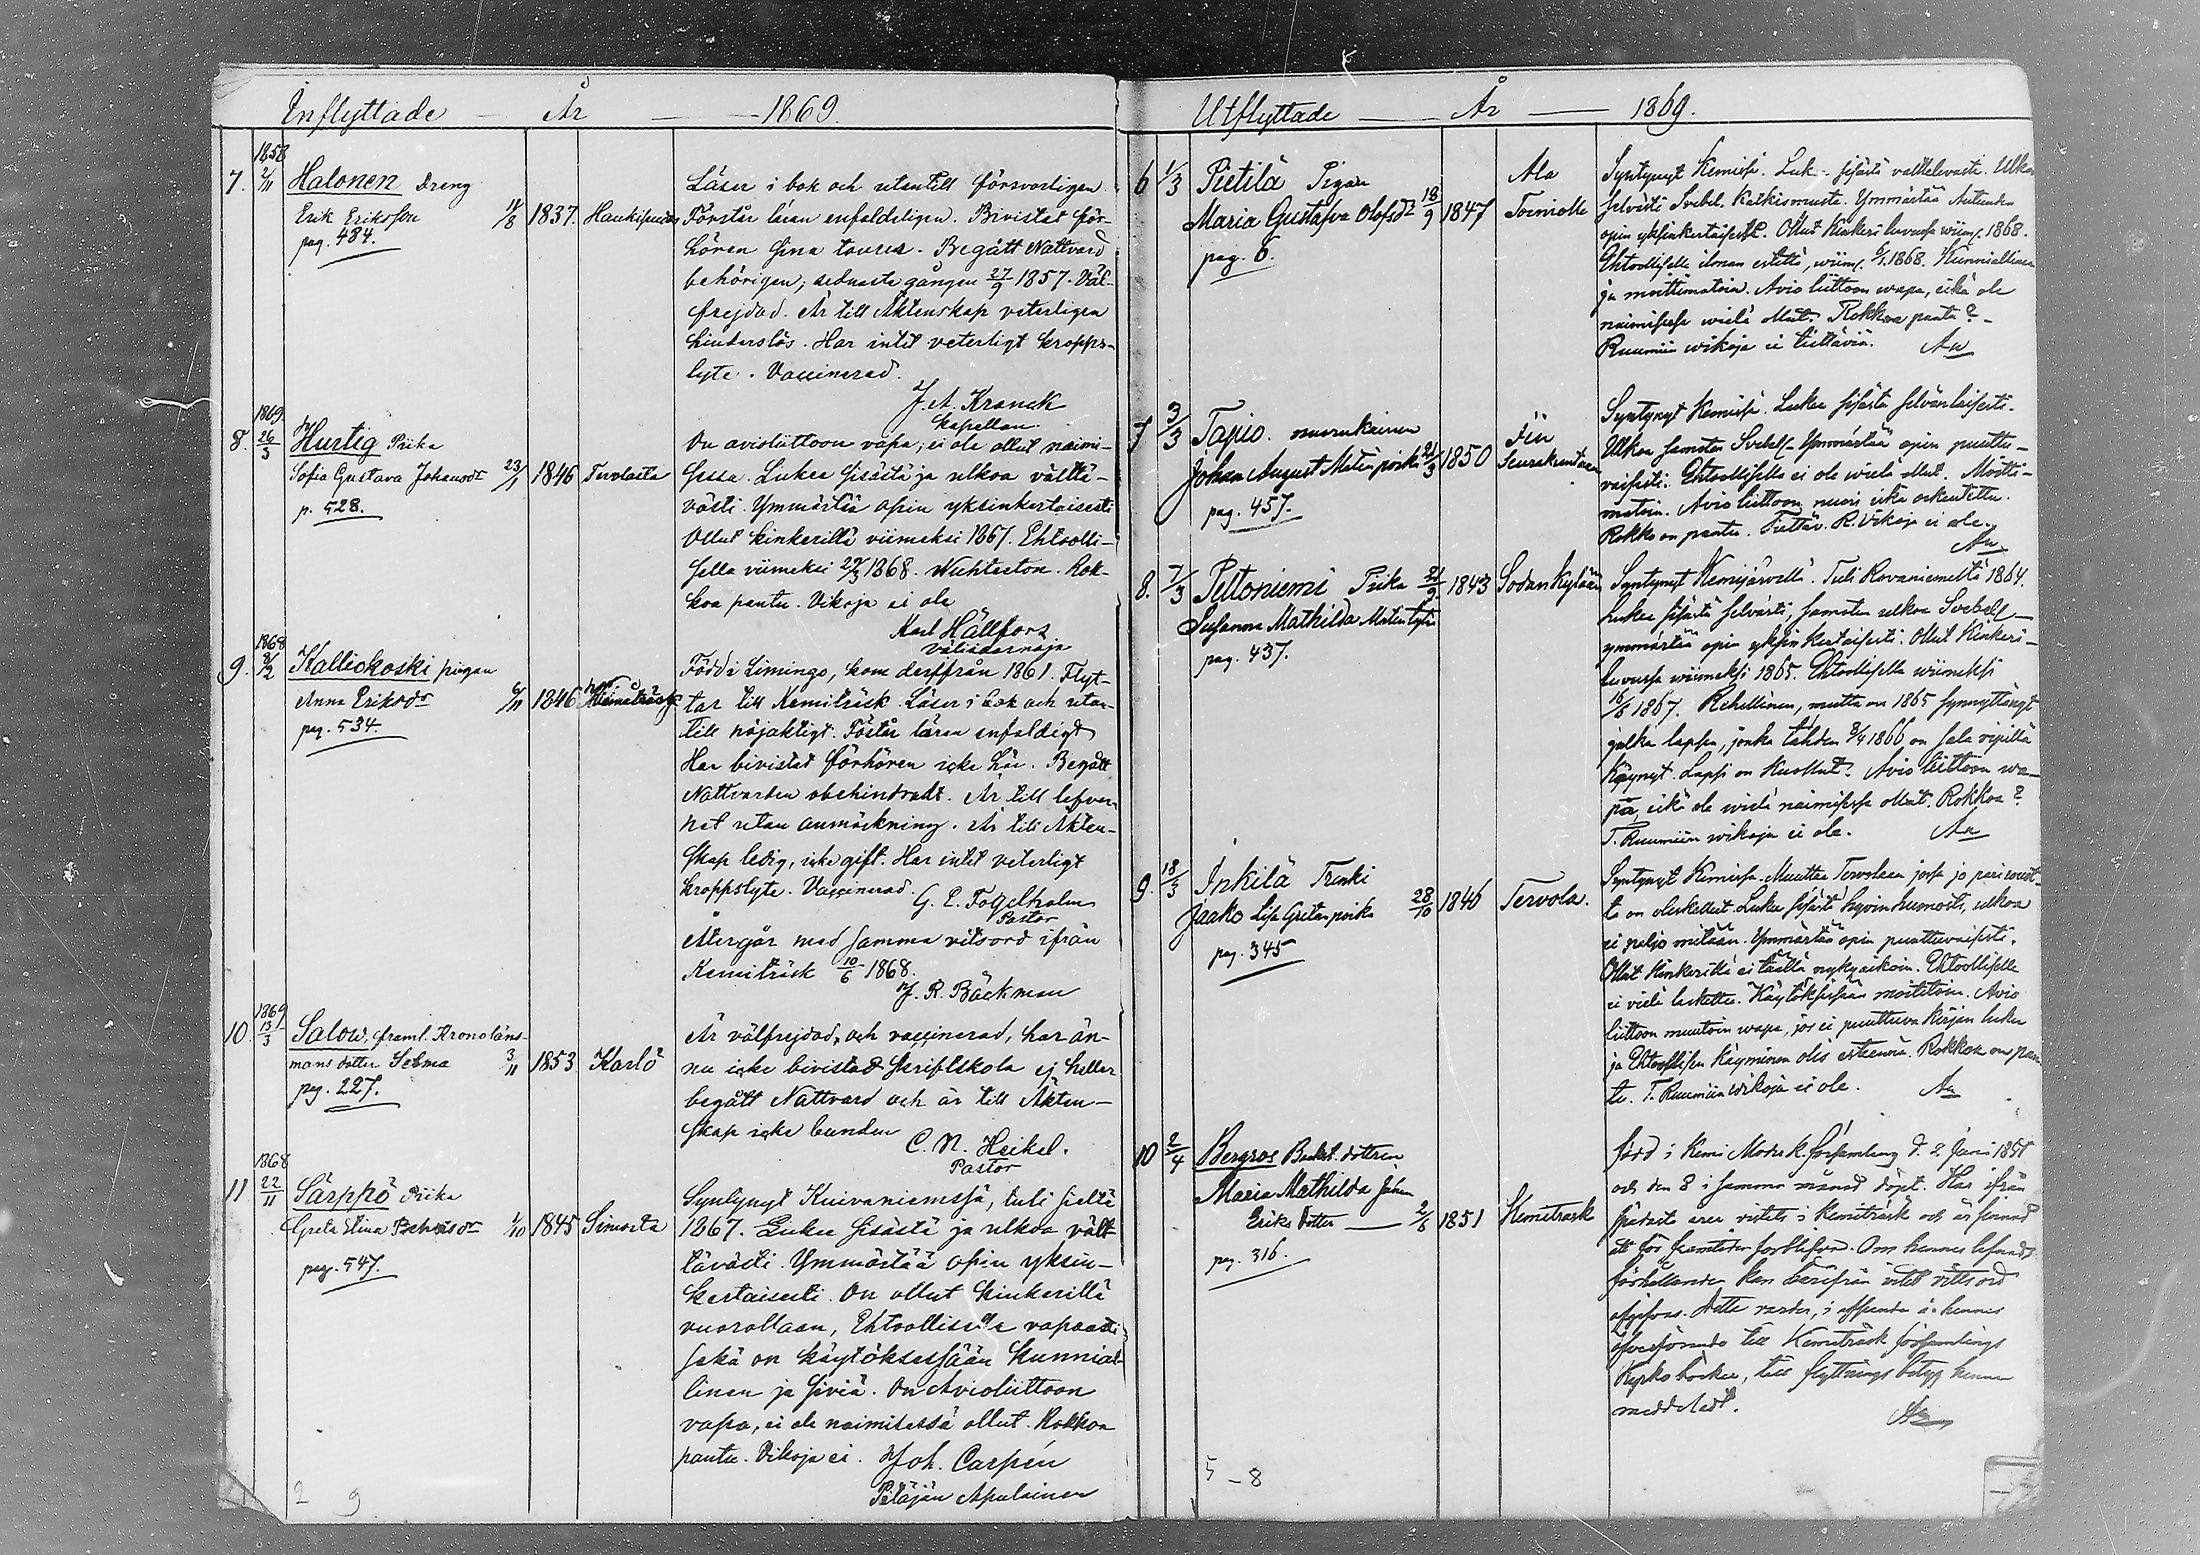 Inflyttade År 1869.
1858
7. 2/11 Halonen Dreng
Erik Eriksson 11/8 1837. Haukipudas
pag. 484.
Läser i bok och utantill försvarligen.
Förstår läran enfaldeligen. Bivistat för-
hören sina tourer. Begått Nattvard
behörigen, sednaste gången 27/9 1857. Väl-
frejdad. Är till Äktenskap veterligen
hinderslös. Har intet veterligt kropps-
lyte. Vaccinerad.
J. A. Kranck
Kapellan.
1869
8. 26/3 Hurtig Piika
Sofia Gustava Johansdr 23/1 1846 Tervolasta
p. 528.
On avioliittoon vapa, ei ole ollut naimi-
sessa. Lukee sisästä ja ulkoa välttä-
västi. Ymmärtää opin yksinkertaisesti
Ollut kinkerillä viimeksi 1867. Ehtoolli-
sella viimeksi 29/3 1868. Nuhteeton. Rok-
koa pantu. Vikoja ei ole
Karl Hällfors
väliaarmaja
1868
9. 8/2 Kalliokoski pigan
Anna Eriksdr 6/11 1846 Kemiträsk
pag. 534.
Född i Limingo, kom derifrån 1861. Flyt-
tar till Kemiträsk. Läser i bok och utan-
till nöjaktigt. Föstår läran enfaldigt
Har bivistat förhören icke här. Begått
Nattvarden obehindradt. Är till lefver-
net utan anmärkning. Är till Äkten-
skap ledig, icke gift. Har intet veterligt
kroppslyte. Vaccinerad.
G. E. Fogelholm
Pastor
Återgår med samma vitsord ifrån
Kemiträsk 10/6 1868.
J. R. Bäckman
1869
10. 13/3 Salow, framl. Kronoläns-
mans dotter Selma 3/11 1853 Karlö
pag. 227.
Är välfrejdad, och vaccinerad, har än-
nu icke bivistat Skriftskola ej heller
begått Nattvard och är till Äkten-
skap icke bunden
C. N. Heikel.
Pastor
1868
11 22/11 Särppö Piika
Greta Stina 1/10 1845 Simosta
pag. 547.
Syntynyt Kuivaniemssä, tuli sieltä
1867. Lukee sisästä ja ulkoa vält-
tävästi. Ymmärtää opin yksin-
kertaisesti. On ollut kinkerillä
vuorollaan, Ehtoollisella vapaasti
sekä on käytöksessään kunnial-
linen ja siviä. On Avioliittoon
vapa, ei ole naimisessa ollut. Rokkoa
pantu. Vikoja ei.
Joh. Carpén
Pitäjän Apulainen
2 9
Utflyttade År 1869.
6 1/3 Pietilä Pigan
Maria Gustafva Olofsdr 18/9 1847 Ala Torniolle
pag. 6.
Syntynyt Kemissä. Luk. sisästä välttävästi. Ulkoa
selvästi Svebel. Katkismusta. Ymmärtää Autuuden
opin yksinkertaisesti. Ollut Kinkeri luvussa wiim. 1868.
Ehtoollisella ilman estettä, wiim. 6/1 1868. Kunniallinen
ja moittimatoin. Avio liittoon wapa, eikä ole
naimisessa wielä ollut. Rokkoa pantu?
Ruumiin wikoja ei tiettäviä.
7 3/3 Tapio. nuorukainen
Johan August Matinpoika 21/3 1850 Iin Seurakuntaan
pag. 457.
Syntynyt Kemissä. Lukee sisästä selvänlaisesti.
Ulkoa samoten Svebel. Ymmärtää opin puuttu-
vaisesti. Ehtoollisella ei ole wielä ollut. Moitti-
matoin. Avio liittoon nuori, eikä
Rokko on pantu. R. Vikoja ei ole.
8. 7/3 Peltoniemi Piika 21/9 1843 Sodankylään
Susanna Mathilda Matintytär
pag. 437.
Syntynyt Kemijärvellä. Tuli Rovaniemeltä 1864.
Lukee sisästä selvästi, samoten ulkoa Svebel.
ymmärtää opin yksinkertaisesti. Ollut Kinkeri-
luvussa wiimeksi 1865. Ehtoollisella wiimeksi
16/6 1867. Rehellinen, mutta on 1865 synnyttänyt
jalka lapsen, jonka tähden 8/4 1866 on sala ripillä
Käynyt. Lapsi on kuollut. Avio liittoon wa-
pa, eikä ole wielä naimisessa ollut. Rokkoa?
T. Ruumiin wikoja ei ole.
9. 18/3 Inkilä Trenki
Jaako Lisa Gretan poika 28/10 1846 Tervola.
pag. 345
Syntynyt Kemissä. Muuttaa Tervolaan jossa jo pari wuot-
ta on oleskellut. Lukee sisästä hyvin huonosti, ulkoa
ei paljo mitään. Ymmärtää opin puuttuvaisesti.
Ollut Kinkerillä ei täällä nykyaikoin. Ehtoollisella
ei vielä laskettu. Käytöksessään moititoin. Avio
liittoon muutoin wapa, jos ei puuttuva kirjan luku
ja Ehtoollisen käyminen olis esteenä. Rokkoa on pan-
tu. T. Ruumiin wikoja ei ole.
10 2/4 Bergros
Maria Mathilda Johan
Eriks Dotter 2/6 1851 Kemitrask
pag. 316.
född i Kemi Moderk. församling d. 2. Juni 1851
och den 8 i samma månad döpt. Har ifrån
spädaste åren vistats i Kemiträsk och är ämnad
att för framtiden förblifva. Om hennes lefnads
förhållanden kan härifrån intet vittsord
afgifvas. Detta varder, i afseende å hennes
öfverförande till Kemiträsk församlings
Kyrko böcker, till flyttnings betyg henne
meddeladt.
5-8